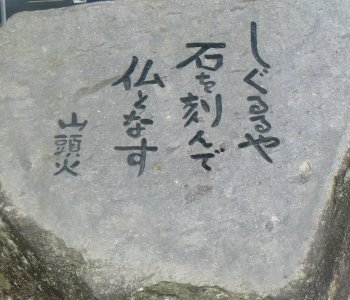 しぐるるや
石を刻んで
仏となす
山頭火